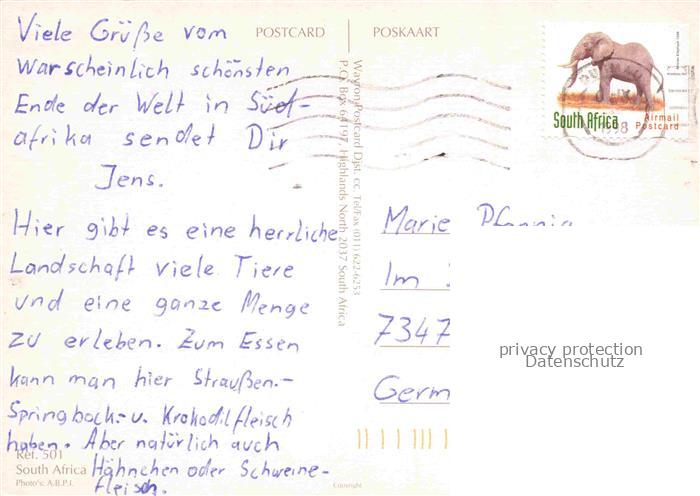 Viele Grüße vom
Warscheinlich schönsten
Ende der Welt in Süd-
afrika sendet Dir
Jens.
Hier gibt es eine herrliche
Landschaft viele Tiere
und eine ganze Menge
zu erleben. Zum Essen
kann man hier Straußen.-
Springbock.- u. Krokodilfleisch
haben. Aber natürlich auch
Hähnchen oder Schweine-
fleisch.
Ref. 501
South Africa
Photo's: A.B.P.I.
POSTCARD
POSKAART
Wayron Postcard Dist. cc. Tel/Fax (011) 622-6253
P.O. Box 64197, Highlands North 2037 South Africa
South Africa
Airmail
Postcard
1998
Marie
Im
7347
Germ
privacy protection
Datenschutz
Copyright